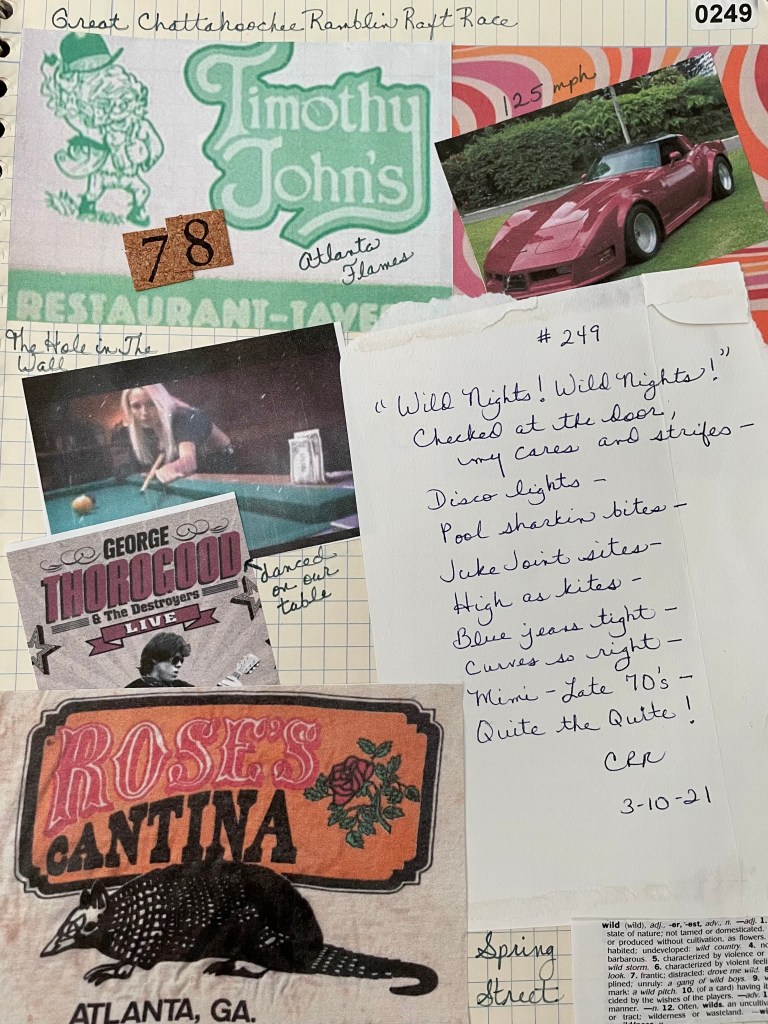 Great Chattahoochee Ramblin Raft Race
0249
Timothy
John's
78
Atlanta
Flames
RESTAURANT-TAVE
125 mph
The Hole in The
Wall
GEORGE
THOROGOOD
& The Destroyers
LIVE
danced
on our
table
# 249
"Wild Nights! Wild Nights!"
Checked at the door,
my cares and strifes –
Disco lights –
Pool sharkin bites –
Juke Joint sites –
High as kites –
Blue jeans tight –
Curves so right –
Mimi – Late 70's –
Quite the Quite!
CRR
3-10-21
ROSE'S
CANTINA
ATLANTA, GA.
Spring
Street
wild (wild), adj., -er, -est, adv., n. —adj. 1.
state of nature; not tamed or domesticated.
or produced without cultivation, as flowers.
habited; undeveloped: wild country. 4. no
barbarous. 5. characterized by violence or
wild storm. 6. characterized by violent feeli
look. 7. frantic; distracted: drove me wild. 8
plined; unruly: a gang of wild boys. 9. w
mark: a wild pitch. 10. (of a card) having it
cided by the wishes of the players. —adv. 1
manner. —n. 12. Often, wilds. an uncultiv
or tract; wilderness or wasteland. —wi